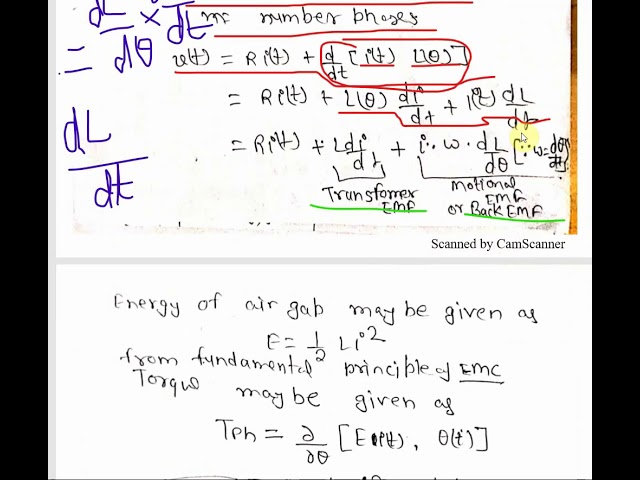 dL/dθ × /dt
= 
m number phases
v(t) = R i(t) + d/dt [i(t) L(θ)]
= R i(t) + L(θ) di/dt + i(t) dL/dt
dL/dt
= R i(t) + L di/dt + i · ω · dL/dθ [∵ ω = dθ/dt]
Transfomer EMF
Motional EMF
or Back EMF
Scanned by CamScanner
Energy of air gab may be given as
E = 1/2 Li²
from fundamental principle of EMC
Torque may be given as
Tph = ∂/∂θ [E i(t), θ(t)]